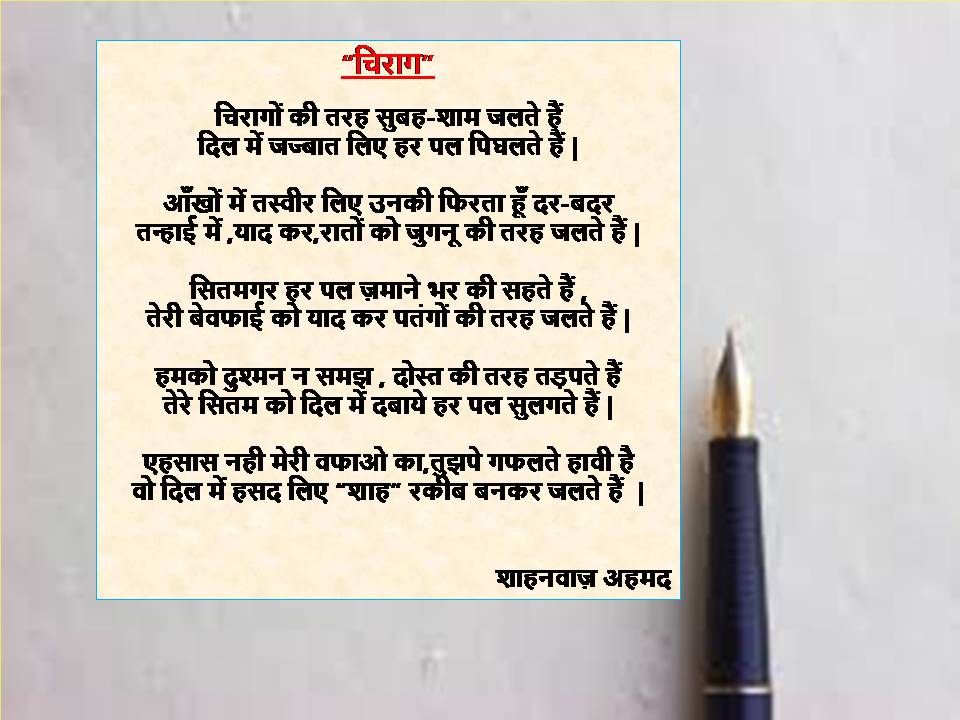 “चिराग”
चिरागों की तरह सुबह-शाम जलते हैं
दिल में जज्बात लिए हर पल पिघलते हैं |
आँखों में तस्वीर लिए उनकी फिरता हूँ दर-बदर
तन्हाई में ,याद कर,रातों को जुगनू की तरह जलते हैं |
सितमगर हर पल ज़माने भर की सहते हैं ,
तेरी बेवफाई को याद कर पतंगों की तरह जलते हैं |
हमको दुश्मन न समझ , दोस्त की तरह तड़पते हैं
तेरे सितम को दिल में दबाये हर पल सुलगते हैं |
एहसास नही मेरी वफाओ का,तुझपे गफलते हावी है
वो दिल में हसद लिए “शाह” रकीब बनकर जलते हैं |
शाहनवाज़ अहमद